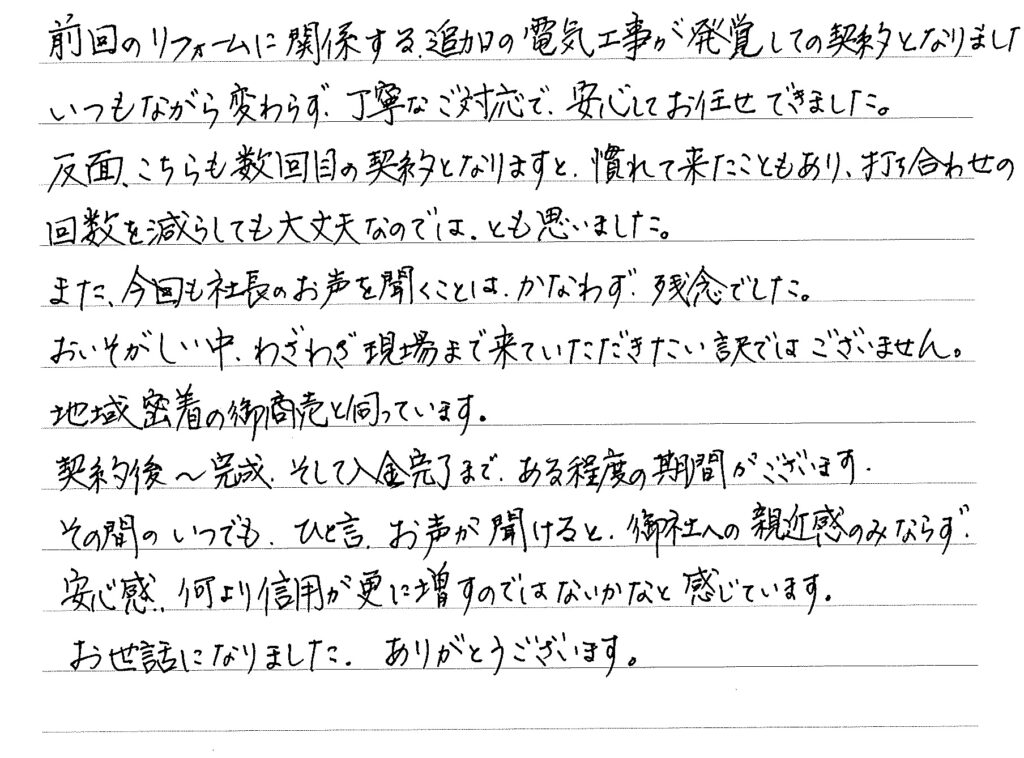 前回のリフォームに関係する、追加の電気工事が発覚しての契約となりまし
いつもながら変わらず、丁寧なご対応で、安心してお任せできました。
反面、こちらも数回目の契約となりますと、慣れて来たこともあり、打ち合わせの
回数を減らしても大丈夫なのでは、とも思いました。
また、今回も社長のお声を聞くことは、かなわず、残念でした。
おいそがしい中、わざわざ現場まで来ていただきたい訳ではございません。
地域密着の御商売と伺っています。
契約後～完成、そして入金完了まで、ある程度の期間がございます。
その間のいつでも、ひと言、お声が聞けると、御社への親近感のみならず、
安心感、何より信用が更に増すのではないかなと感じています。
お世話になりました。ありがとうございます。